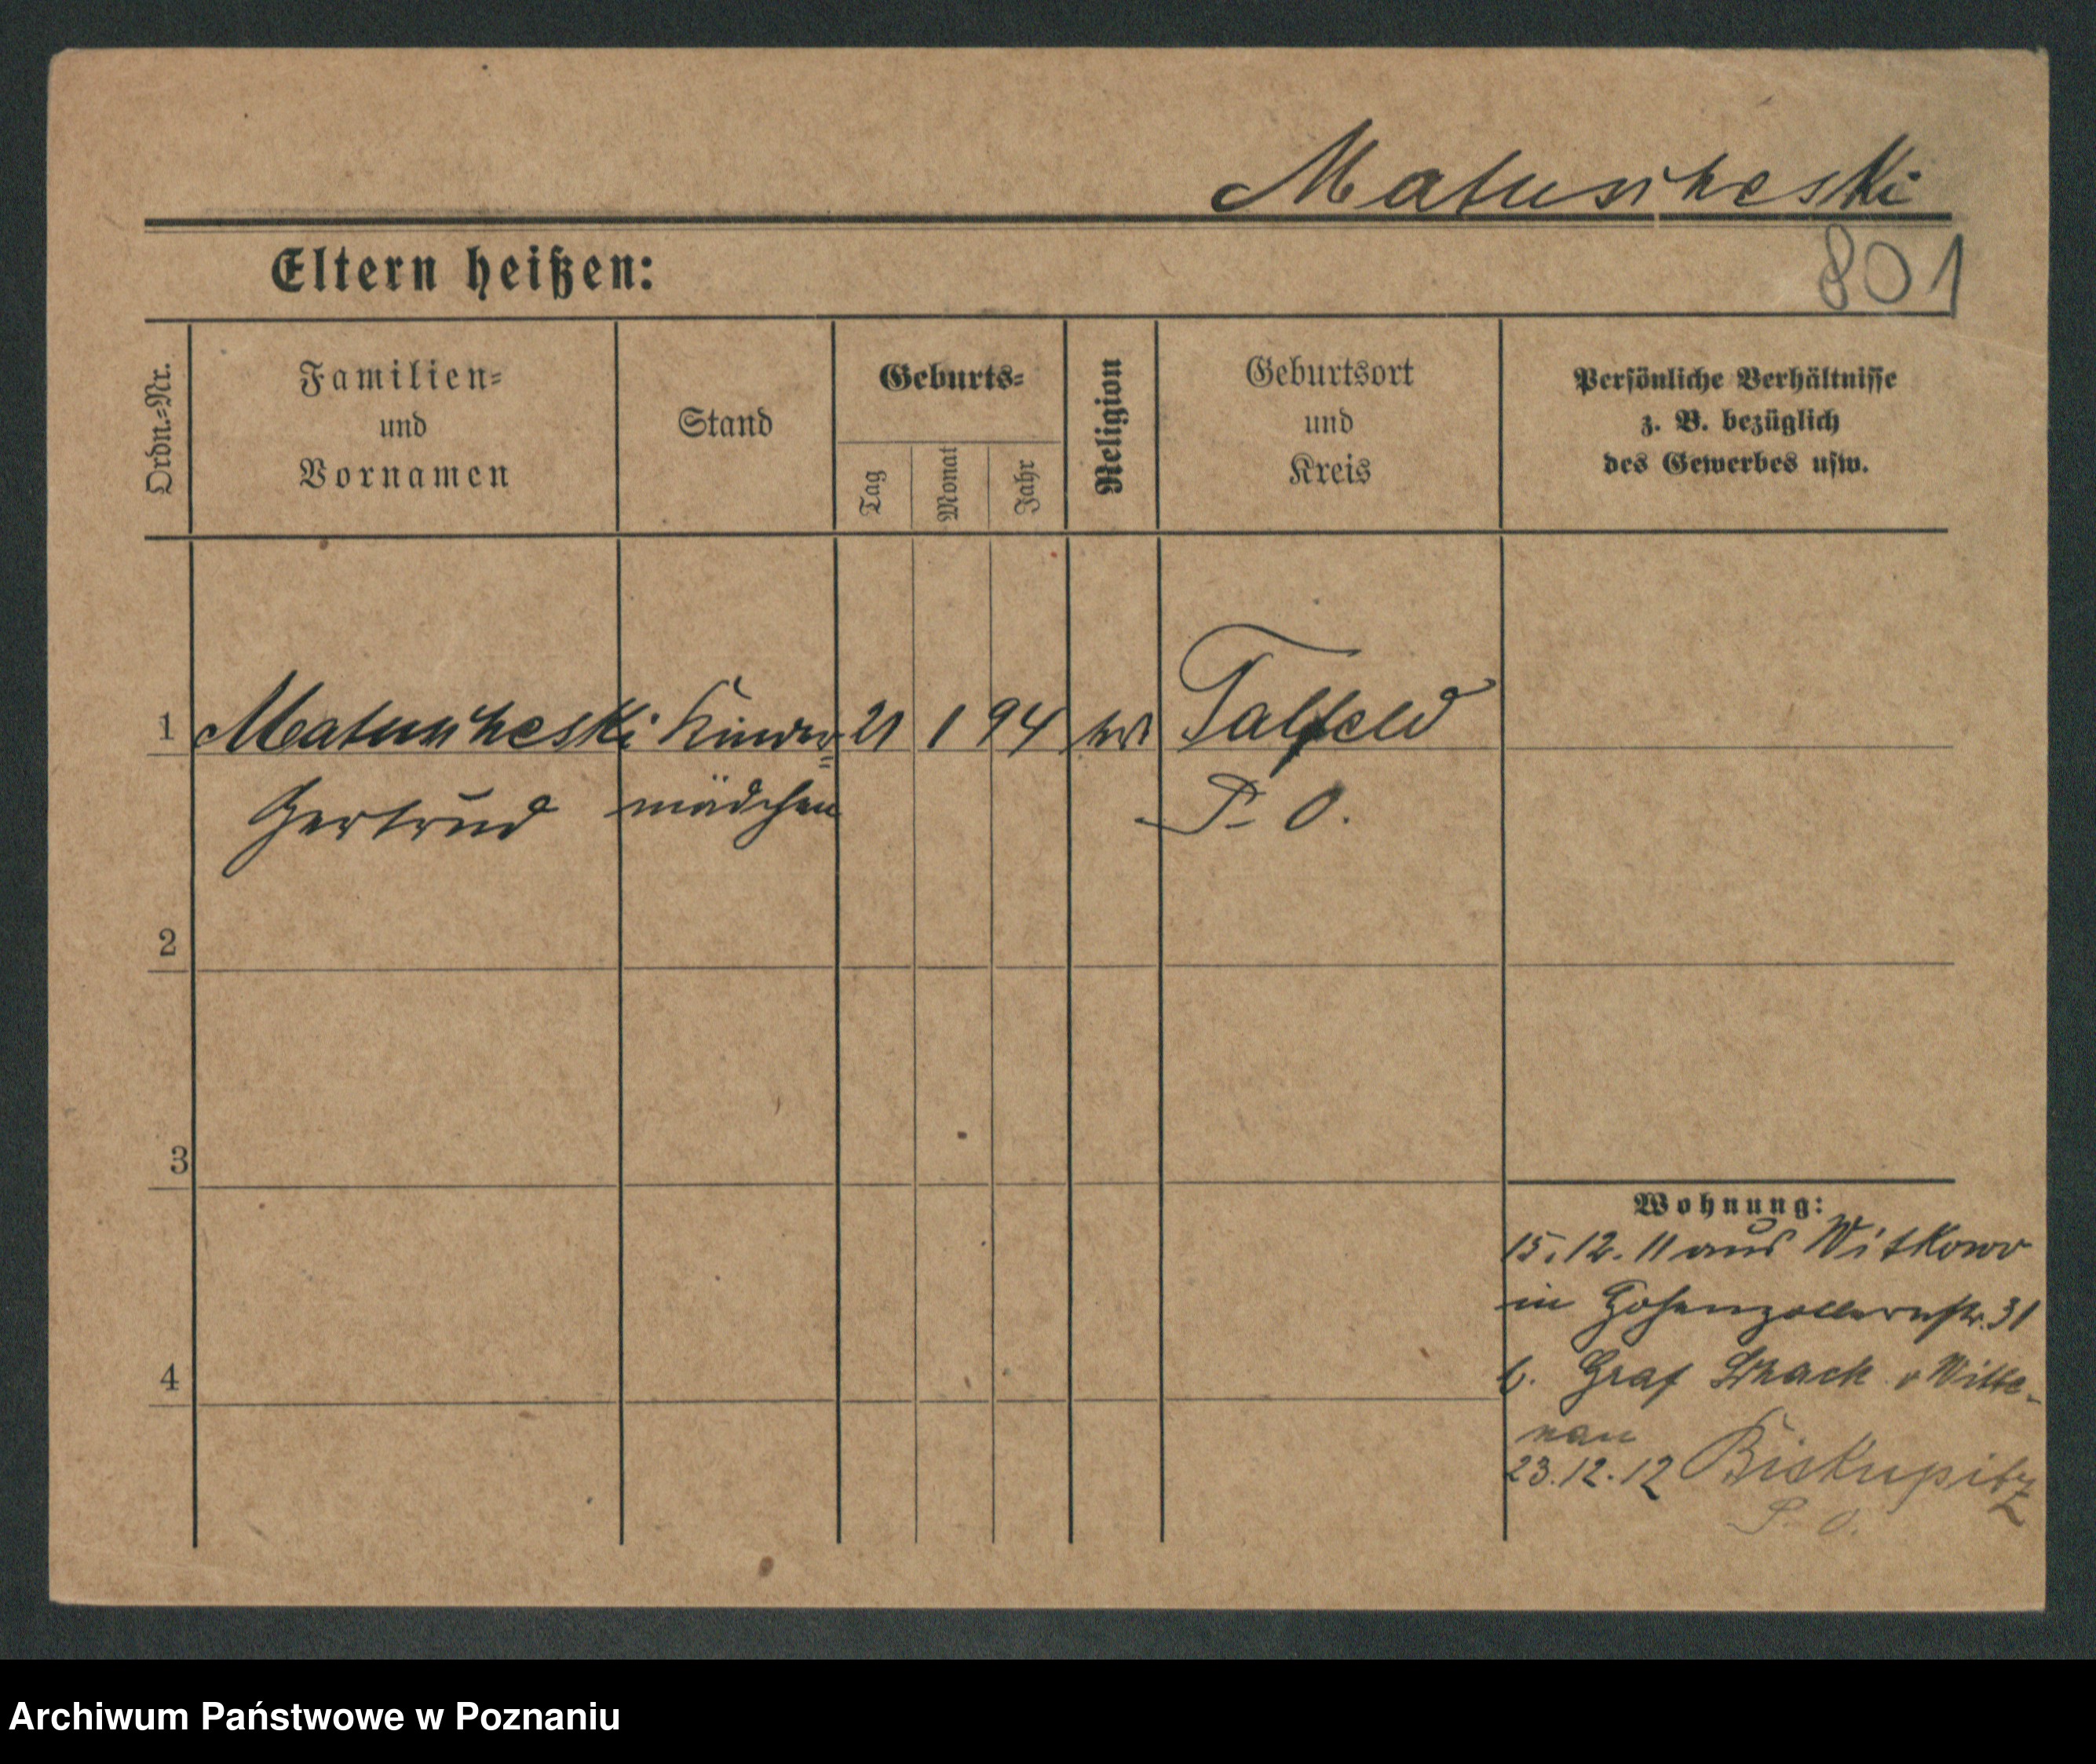 Matuscheski
Eltern heißen:
801
Ordn.=Nr.
Familien=
und
Vornamen
Stand
Geburts=
Tag
Monat
Jahr
Religion
Geburtsort
und
Kreis
Persönliche Verhältnisse
z. B. bezüglich
des Gewerbes usw.
1 Matuscheski Kinder= 21 1 94 Talfeld
Gertrud mädchen P. O.
2
3
4
Wohnung:
15.12.11 aus Witkowo
in Hohenzollernstr. 31
b. Graf Schack v Witte-
nau
23.12.12 Biskupitz
P. O.
Archiwum Państwowe w Poznaniu